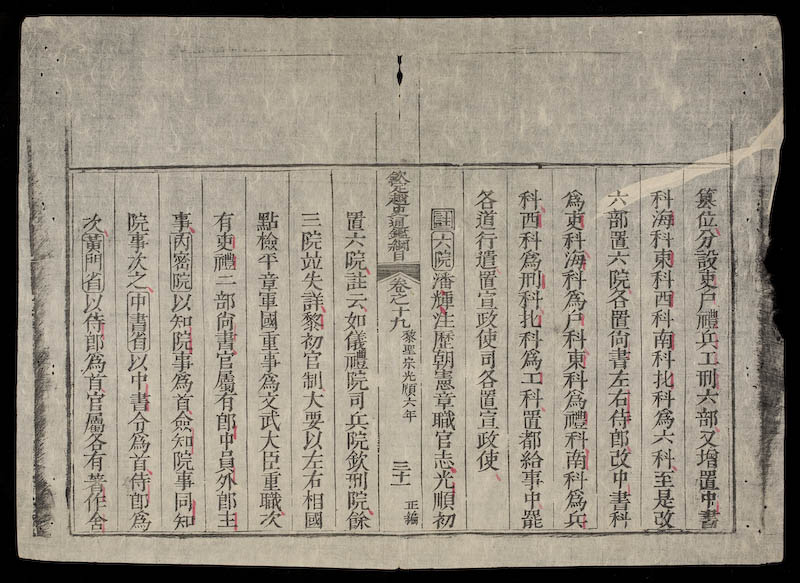 篡位分設吏戶禮兵工刑六部又增置中書
科海科東科西科南科北科爲六科至是改
六部置六院各置尙書左右侍郎改中書科
爲吏科海科爲户科東科爲禮科南科爲兵
科西科爲刑科北科爲工科置都給事中罷
各道行遣置宣政使司各置宣政使
註六院潘輝注歷朝憲章職官志光順初
欽定越史通鑑綱目 卷之十九 黎聖宗光順六年 三十一 正編
置六院註云如儀禮院司兵院欽刑院餘
三院竝失詳黎初官制大要以左右相國
點檢平章軍國重事爲文武大臣重職次
有吏禮二部尙書官屬有郎中員外郎主
事丙密院以知院事爲首僉知院事同知
院事次之中書省以中書令爲首侍郎爲
次黃門省以侍郎爲首官屬各有著作舍